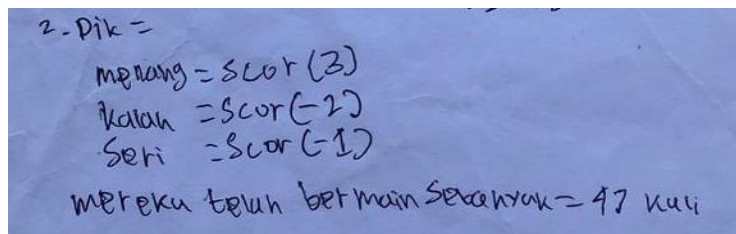 2. Dik =
menang = scor (3)
kalah = scor (-2)
Seri = Scor (-1)
mereka telah bermain sebanyak = 47 kali